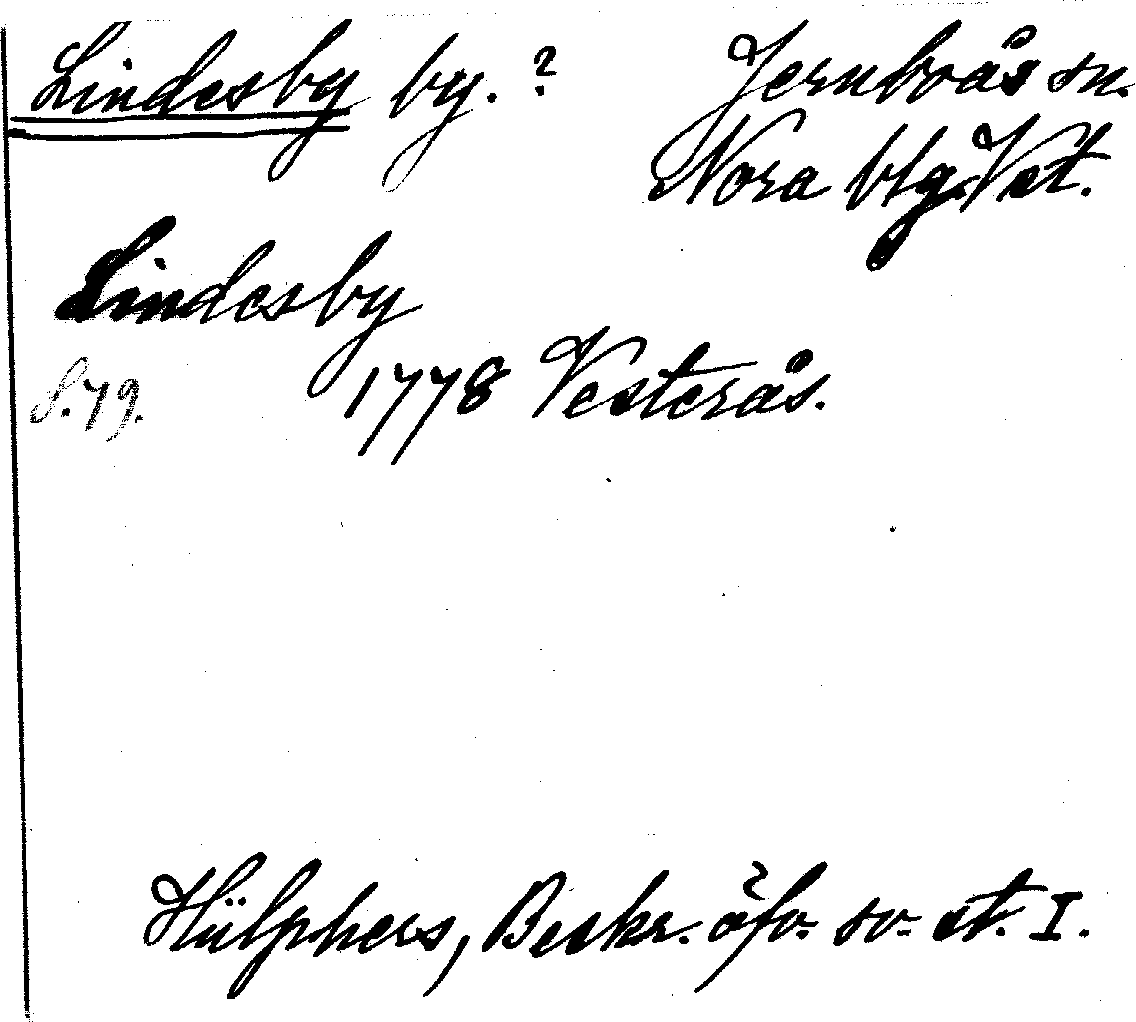 Lindesby by. ? Jernboås sn.
Nora btg. Vst.
Lindesby
S. 79. 1778 Vesterås.
Hülphers, Beskr. öfv. sv. st. I.